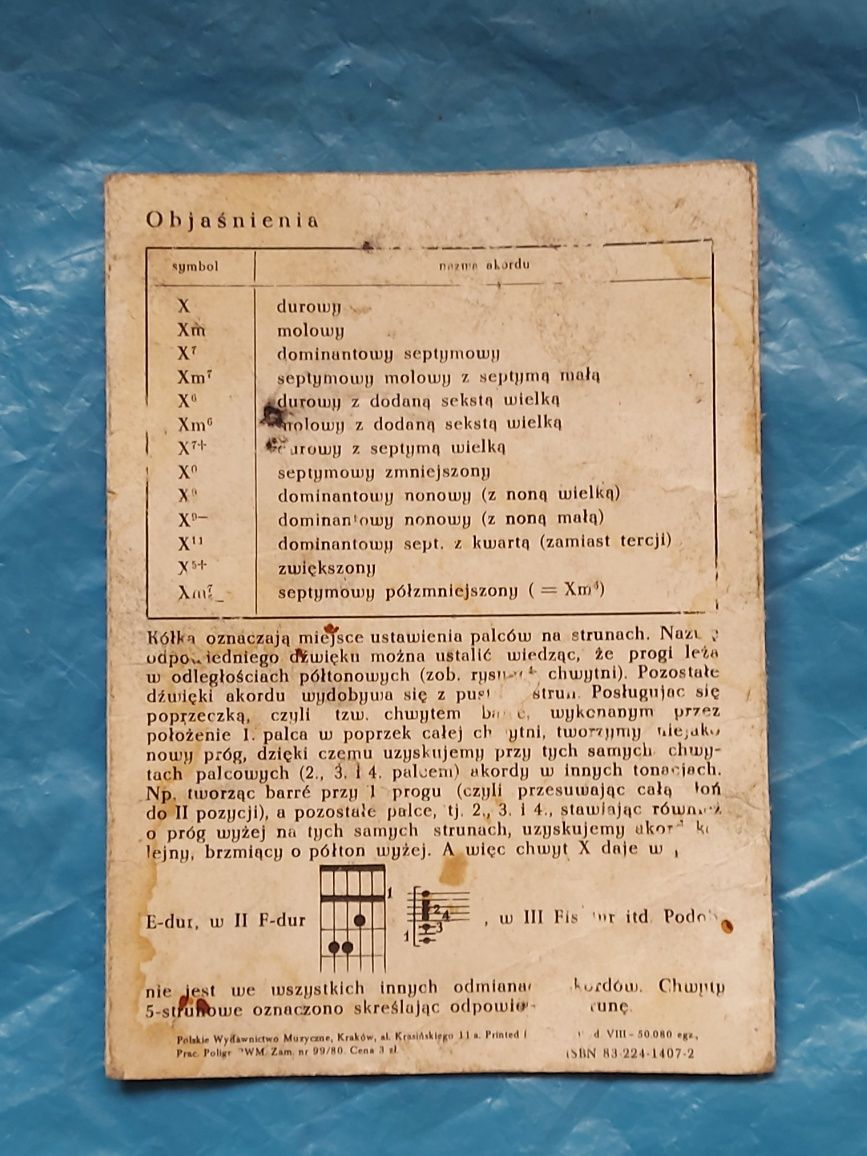 Objaśnienia
symbol nazwa akordu
X durowy
Xm molowy
X⁷ dominantowy septymowy
Xm⁷ septymowy molowy z septymą małą
X⁶ durowy z dodaną sekstą wielką
Xm⁶ molowy z dodaną sekstą wielką
X⁷⁺ durowy z septymą wielką
X⁰ septymowy zmniejszony
X⁹ dominantowy nonowy (z noną wielką)
X⁹⁻ dominantowy nonowy (z noną małą)
X¹¹ dominantowy sept. z kwartą (zamiast tercji)
X⁵⁺ zwiększony
septymowy półzmniejszony ( =
Kółka oznaczają miejsce ustawienia palców na strunach.
odpowiedniego dźwięku można ustalić wiedząc, że progi leżą
w odległościach półtonowych (zob. chwytni). Pozostałe
dźwięki akordu wydobywa się z strun. Posługując się
poprzeczką, czyli tzw. chwytem wykonanym przez
położenie 1. palca w poprzek całej tworzymy niejako
nowy próg, dzięki czemu uzyskujemy przy tych samych chwy-
tach palcowych (2., 3. i 4. palcem) akordy w innych tonacjach.
Np. tworząc barré przy I progu (czyli przesuwając całą
do II pozycji), a pozostałe palce, tj. 2., 3. i 4., stawiając również
o próg wyżej na tych samych strunach, uzyskujemy akord
lejny, brzmiący o półton wyżej. A więc chwyt X daje w
E-dur, w II F-dur 1 2 4 3 1 , w III itd.
nie jest we wszystkich innych Chwyty
5-strunowe oznaczono skreślając
Polskie Wydawnictwo Muzyczne, Kraków, al. Krasińskiego 11 a. Printed VIII – 50.080 egz.,
Prac. Poligr PWM. Zam. nr 99/80. Cena 3 zł. ISBN 83-224-1407-2